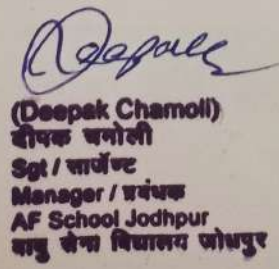 Deepak
(Deepak Chamoli)
दीपक चमोली
Sgt / सार्जेण्ट
Manager / प्रबंधक
AF School Jodhpur
वायु सेना विद्यालय जोधपुर